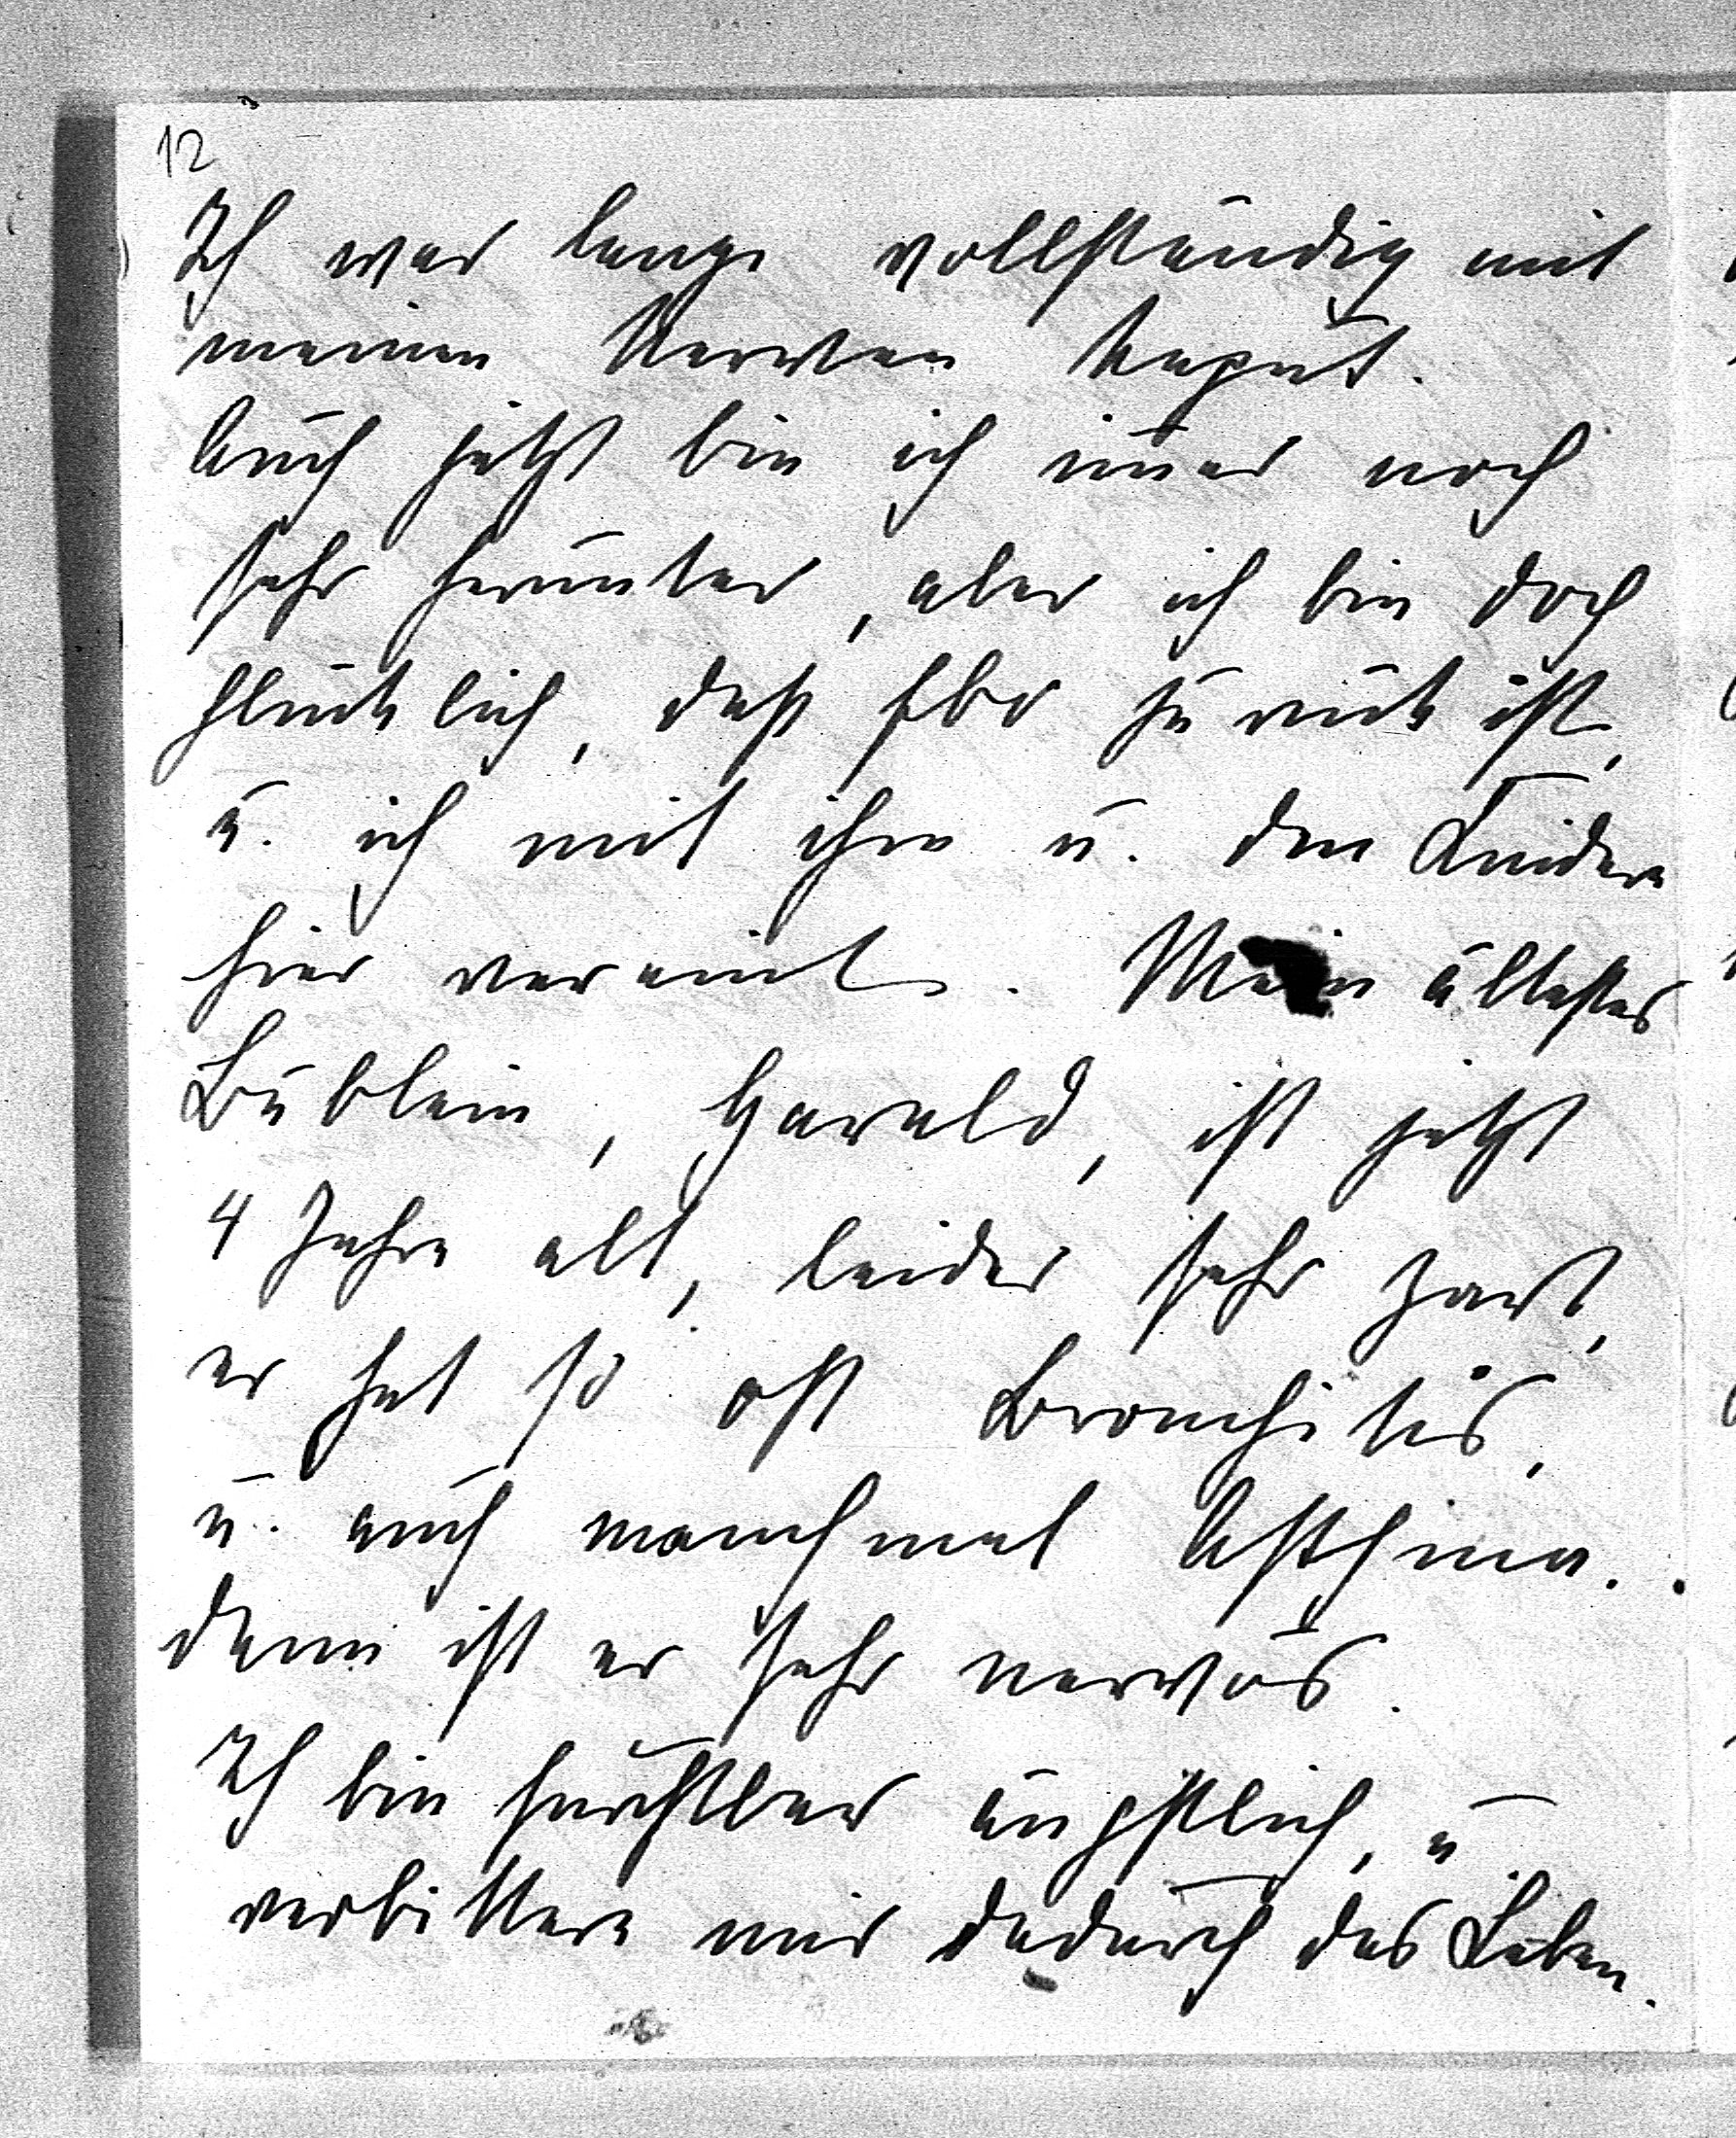 12
Ich war lange vollständig mit
meinen Nerven kaput.
Auch jetzt bin ich im̄er noch
sehr herunter, aber ich bin doch
glücklich, daß Ebo zurück ist,
u. ich mit ihm u. den Kindern
hier vereint. Mein ältestes
Büblein, Harald, ist jetzt
4 Jahre alt, leider sehr zart,
er hat so oft Bronchitis,
u. auch manchmal Asthma.
dann ist er sehr nervös.
Ich bin furchtbar ängstlich, u
verbittere mir dadurch das Leben.